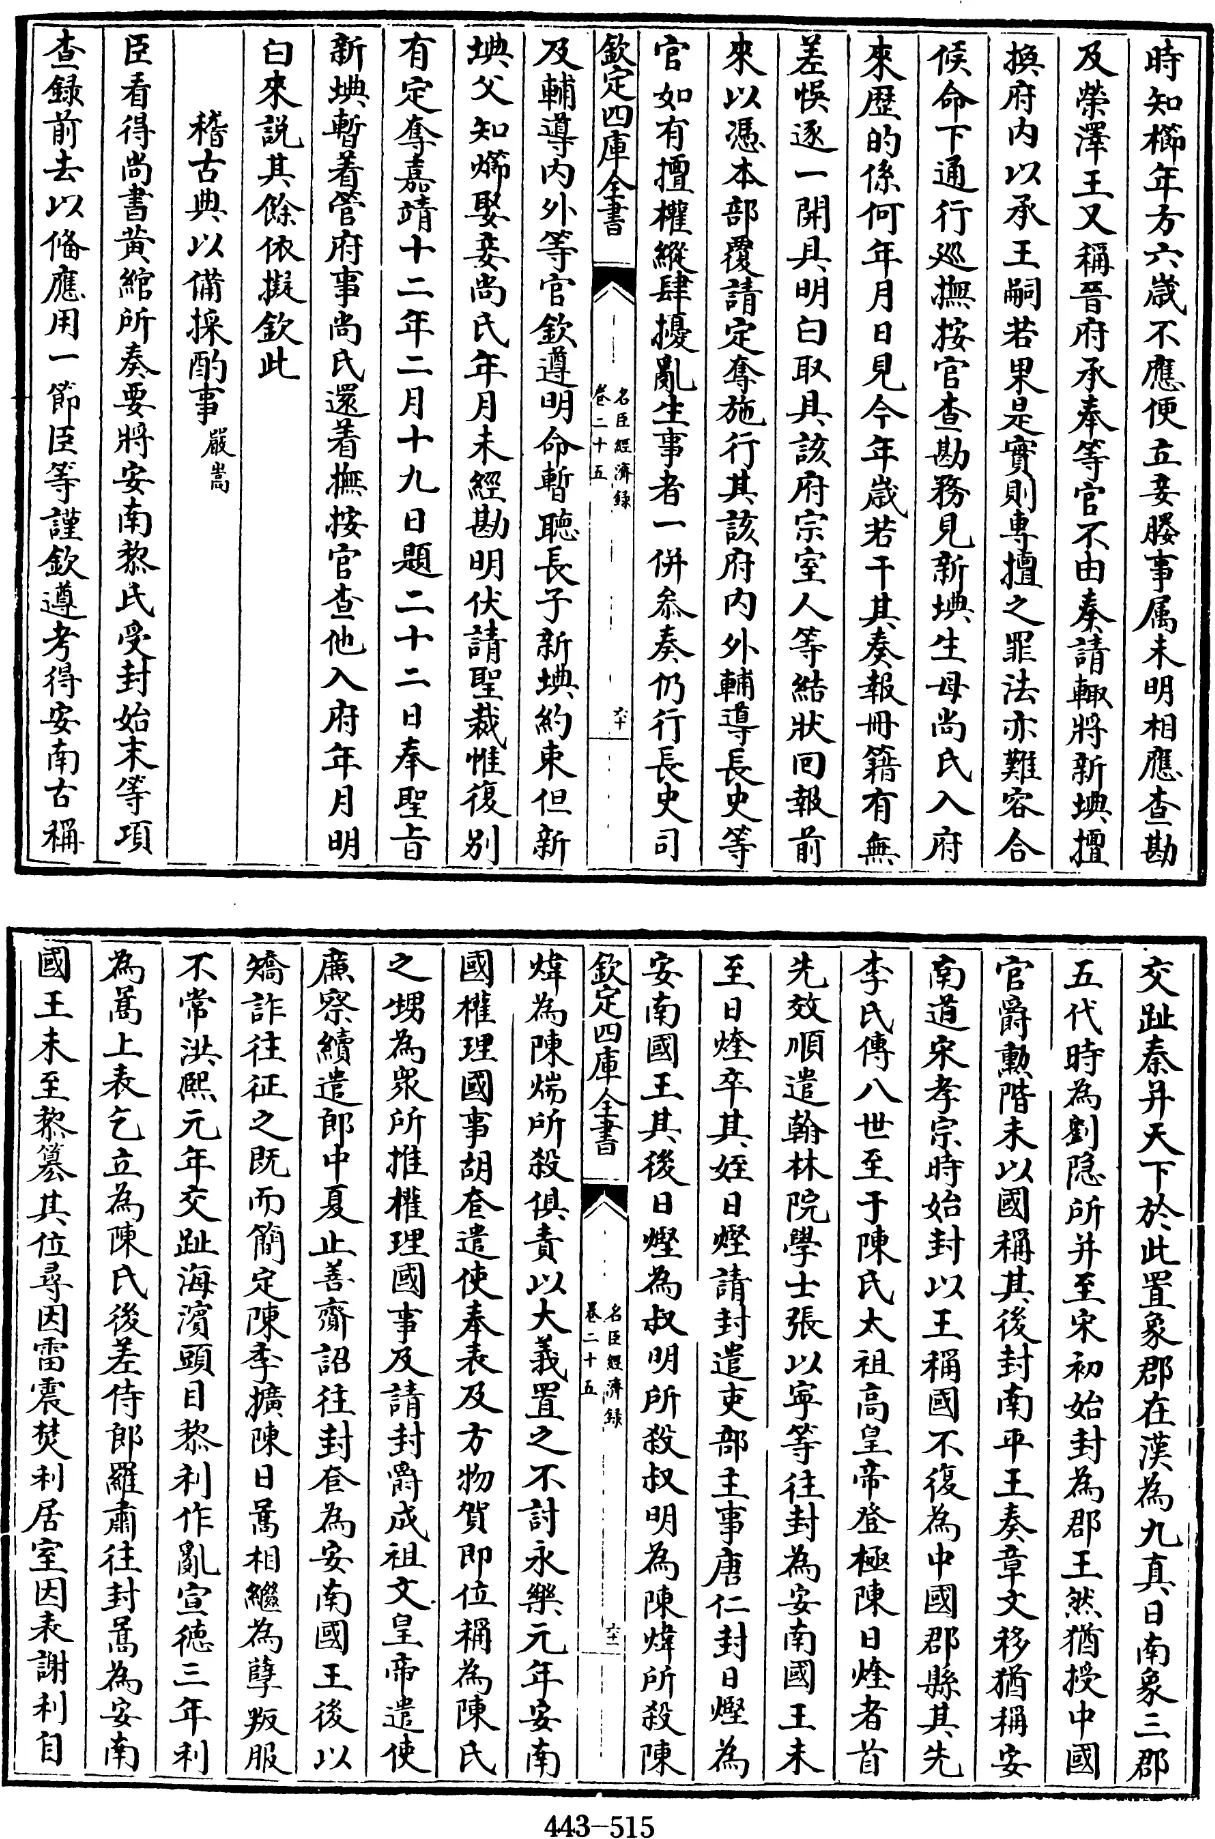 時知㸅年方六歲不應便立妾媵事属未明相應查勘
及榮澤王又稱晉府承奉等官不由奏請輙將新㙉擅
換府内以承王嗣若果是實則專擅之罪法亦難容合
候命下通行巡撫按官查勘務見新㙉生母尚氏入府
來歴的係何年月日見今年歲若干其奏報冊籍有無
差悞逐一開具明白取具該府宗室人等結狀回報前
來以憑本部覆請定奪施行其該府内外輔導長史等
官如有擅權縱肆擾亂生事者一併叅奏仍行長史司
欽定四庫全書
名臣經濟録
卷二十五
六十
及輔導内外等官欽遵明命暫聽長子新㙉約束但新
㙉父知㸅娶妾尚氏年月未經勘明伏請聖裁惟復别
有定奪嘉靖十二年二月十九日題二十二日奉聖旨
新㙉暫着管府事尚氏還着撫按官查他入府年月明
白來説其餘依擬欽此
稽古典以備採酌事嚴嵩
臣看得尚書黄綰所奏要將安南黎氏受封始末等項
查録前去以偹應用一節臣等謹欽遵考得安南古稱
交趾秦并天下於此置象郡在漢為九真日南象三郡
五代時為劉隐所并至宋初始封為郡王然猶授中國
官爵勲階未以國稱其後封南平王奏章文移猶稱安
南道宋孝宗時始封以王稱國不復為中國郡縣其先
李氏傳八世至于陳氏太祖高皇帝登極陳日煃者首
先效順遣翰林院學士張以寧等往封為安南國王未
至日煃卒其姪日熞請封遣吏部主事唐仁封日熞為
安南國王其後日熞為叔明所殺叔明為陳煒所殺陳
欽定四庫全書
名臣經濟録
卷二十五
六十一
煒為陳煓所殺俱責以大義置之不討永樂元年安南
國權理國事胡𡗨遣使奉表及方物賀即位稱為陳氏
之甥為衆所推權理國事及請封爵成祖文皇帝遣使
廉察續遣郎中夏止善齎詔往封𡗨為安南國王後以
矯詐往征之既而簡定陳季擴陳日暠相繼為孽叛服
不常洪熙元年交趾海濵頭目黎利作亂宣徳三年利
為暠上表乞立為陳氏後差侍郎羅肅往封暠為安南
國王未至黎簒其位尋因雷震焚利居室因表謝利自
443-515